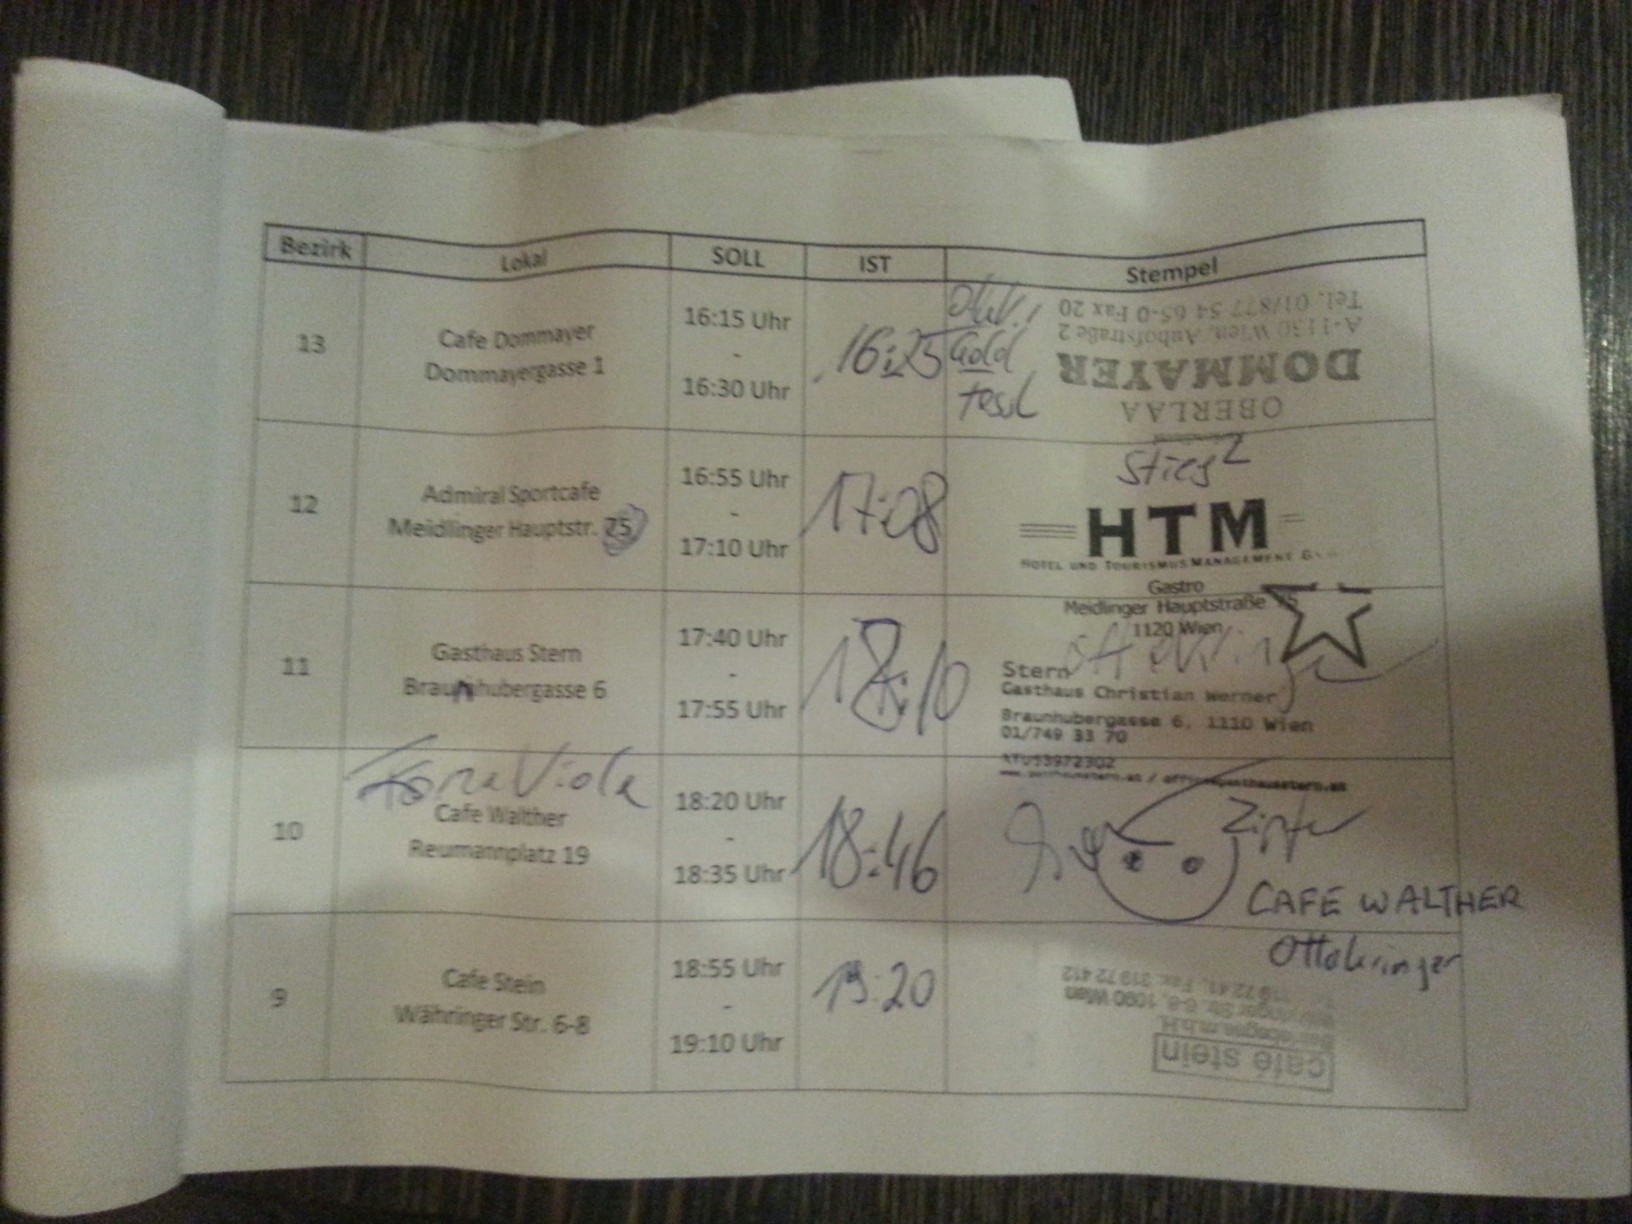 Bezirk Lokal SOLL IST Stempel
13
Cafe Dommayer
Dommayergasse 1
16:15 Uhr
-
16:30 Uhr
16:25
Gold
OBERLAA
DOMMAYER
A-1130 Wien, Auhofstraße 2
Tel. 01/877 54 65-0 Fax 20
12
Admiral Sportcafe
Meidlinger Hauptstr. 75
16:55 Uhr
-
17:10 Uhr
17:08
Stiegl
HTM
HOTEL UND TOURISMUSMANAGEMENT
Gastro
Meidlinger Hauptstraße 75
1120 Wien
11
Gasthaus Stern
Braunhubergasse 6
17:40 Uhr
-
17:55 Uhr
18:10
Stern
Gasthaus Christian Werner
Braunhubergasse 6, 1110 Wien
01/749 33 70
10
Cafe Walther
Reumannplatz 19
18:20 Uhr
-
18:35 Uhr
18:46
Zipfer
CAFE WALTHER
9
Cafe Stein
Währinger Str. 6-8
18:55 Uhr
-
19:10 Uhr
19:20
Ottakringer
café stein
Währinger Str. 6-8, 1090 Wien
319 72 41, Fax: 319 72 412